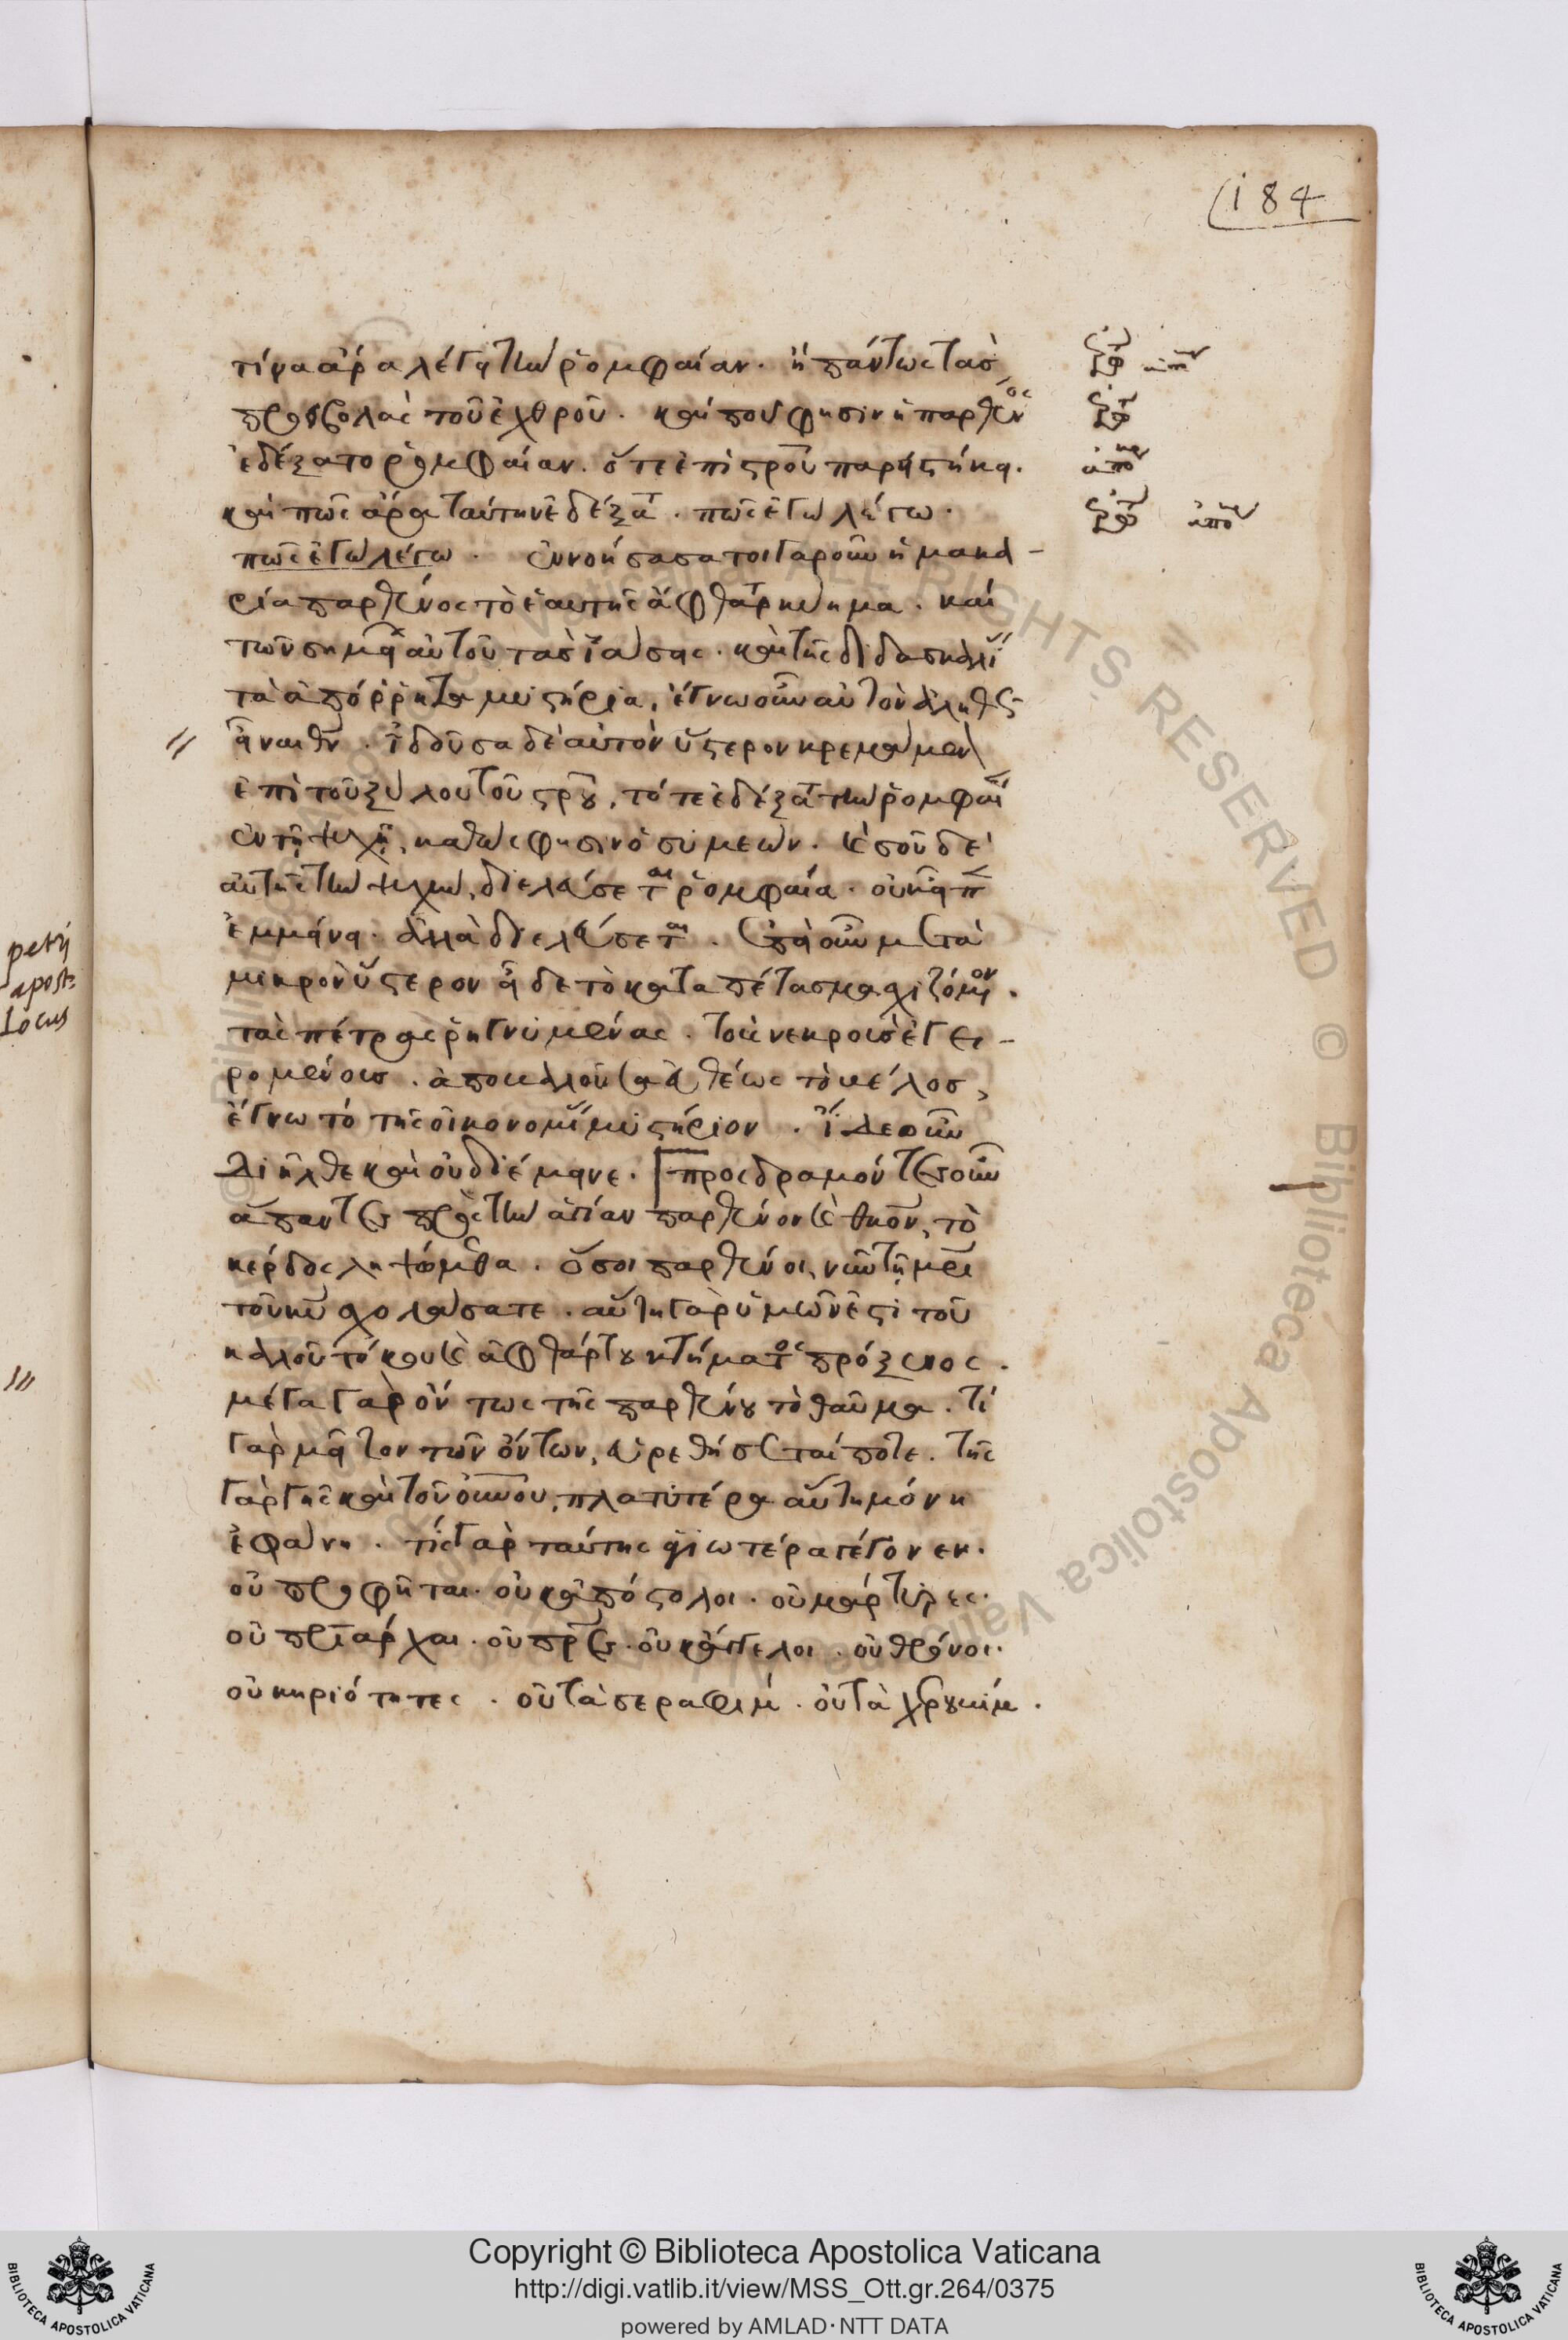 (184
τίνα ἄρα λέγει τὴν ῥομφαίαν· ἢ πάντως τὰς
προσβολὰς τοῦ ἐχθροῦ· καὶ ποῦ φησιν ἡ παρθένος
ἐδέξατο ῥομφαίαν· ὅτε ἐπὶ σ̅ρ̅οῦ παρηστήκει·
καὶ πῶς ἄρα ταύτην ἐδέξατ· πῶς ἐγὼ λέγω·
πῶς ἐγὼ λέγω· ἐννοήσασα τοιγαροῦν ἡ μακα-
ρία παρθένος τὸ ἑαυτῆς ἄφθαρτ κύημα· καὶ
τῶν σημεί αὐτοῦ τὰς ἰάσεις· καὶ τῆς διδασκαλί
τὰ ἀπόρρητα μυστήρια, ἔγνω οὖν αὐτὸν ἀληθς
εἶναι θ̅ν̅· ἰδοῦσα δὲ αὐτὸν ὕστερον κρεμάμεν
ἐπὶ τοῦ ξύλου τοῦ σ̅ρ̅ου, τότε ἐδέξατ τὴν ῥομφαί
ἐν τῇ ψυχῇ, καθώς φησιν ὁ συμεών· καὶ σοῦ δὲ
αὐτῆς τὴν ψυχὴν, διελεύσεται ῥομφαία· οὐκ εἶπ
ἐμμένει· ἀλλὰ διελεύσεται· ἐπεὶ οὖν μετὰ
μικρὸν ὕστερον εἶδε τὸ καταπέτασμα σχιζόμενον·
τὰς πέτρας ῥηγνυμένας· τοὺς νεκροὺς ἐγει-
ρομένους· ἀποκαλοῦσα εὐθέως τὸ βέλος,
ἔγνω τὸ τῆς οἰκονομί μυστήριον· ἴδε οὖν
διῆλθε καὶ οὐ διέμεινε· προσδραμόντες οὖν
ἅπαντες πρὸς τὴν ἁγίαν παρθένον καὶ θ̅κ̅ον, τὸ
κέρδος ληψόμεθα· ὅσοι παρθένοι, νῦν τῇ μ̅ρ̅ι
τοῦ κ̅υ̅ σχολάσατε· αὕτη γὰρ ὑμῶν ἐστὶ τοῦ
καλοῦ τόκου καὶ ἀφθάρτου κτήματος πρόξενος·
μέγα γὰρ ὄντως τῆς παρθένου τὸ θαῦμα· τί
γὰρ μεῖζον τῶν ὄντων, εὑρεθήσεται ποτε· τῆς
γὰρ γῆς καὶ τοῦ ο̅υ̅νου, πλατυτέρα αὕτη μόνη
ἐφάνη· τίς γὰρ ταύτης ἁγιωτέρα γέγονεν·
οὐ προφῆται· οὐκ ἀπόστολοι· οὐ μάρτυρες·
οὐ πριάρχαι· οὐ π̅ρ̅ες· οὐκ ἄγγελοι· οὐ θρόνοι·
οὐ κυριότητες· οὐ τὰ σεραφίμ· οὐ τὰ χερουβίμ·
petri
apost:
locus
Copyright © Biblioteca Apostolica Vaticana
http://digi.vatlib.it/view/MSS_Ott.gr.264/0375
powered by AMLAD·NTT DATA
BIBLIOTECA APOSTOLICA VATICANA
BIBLIOTECA APOSTOLICA VATICANA